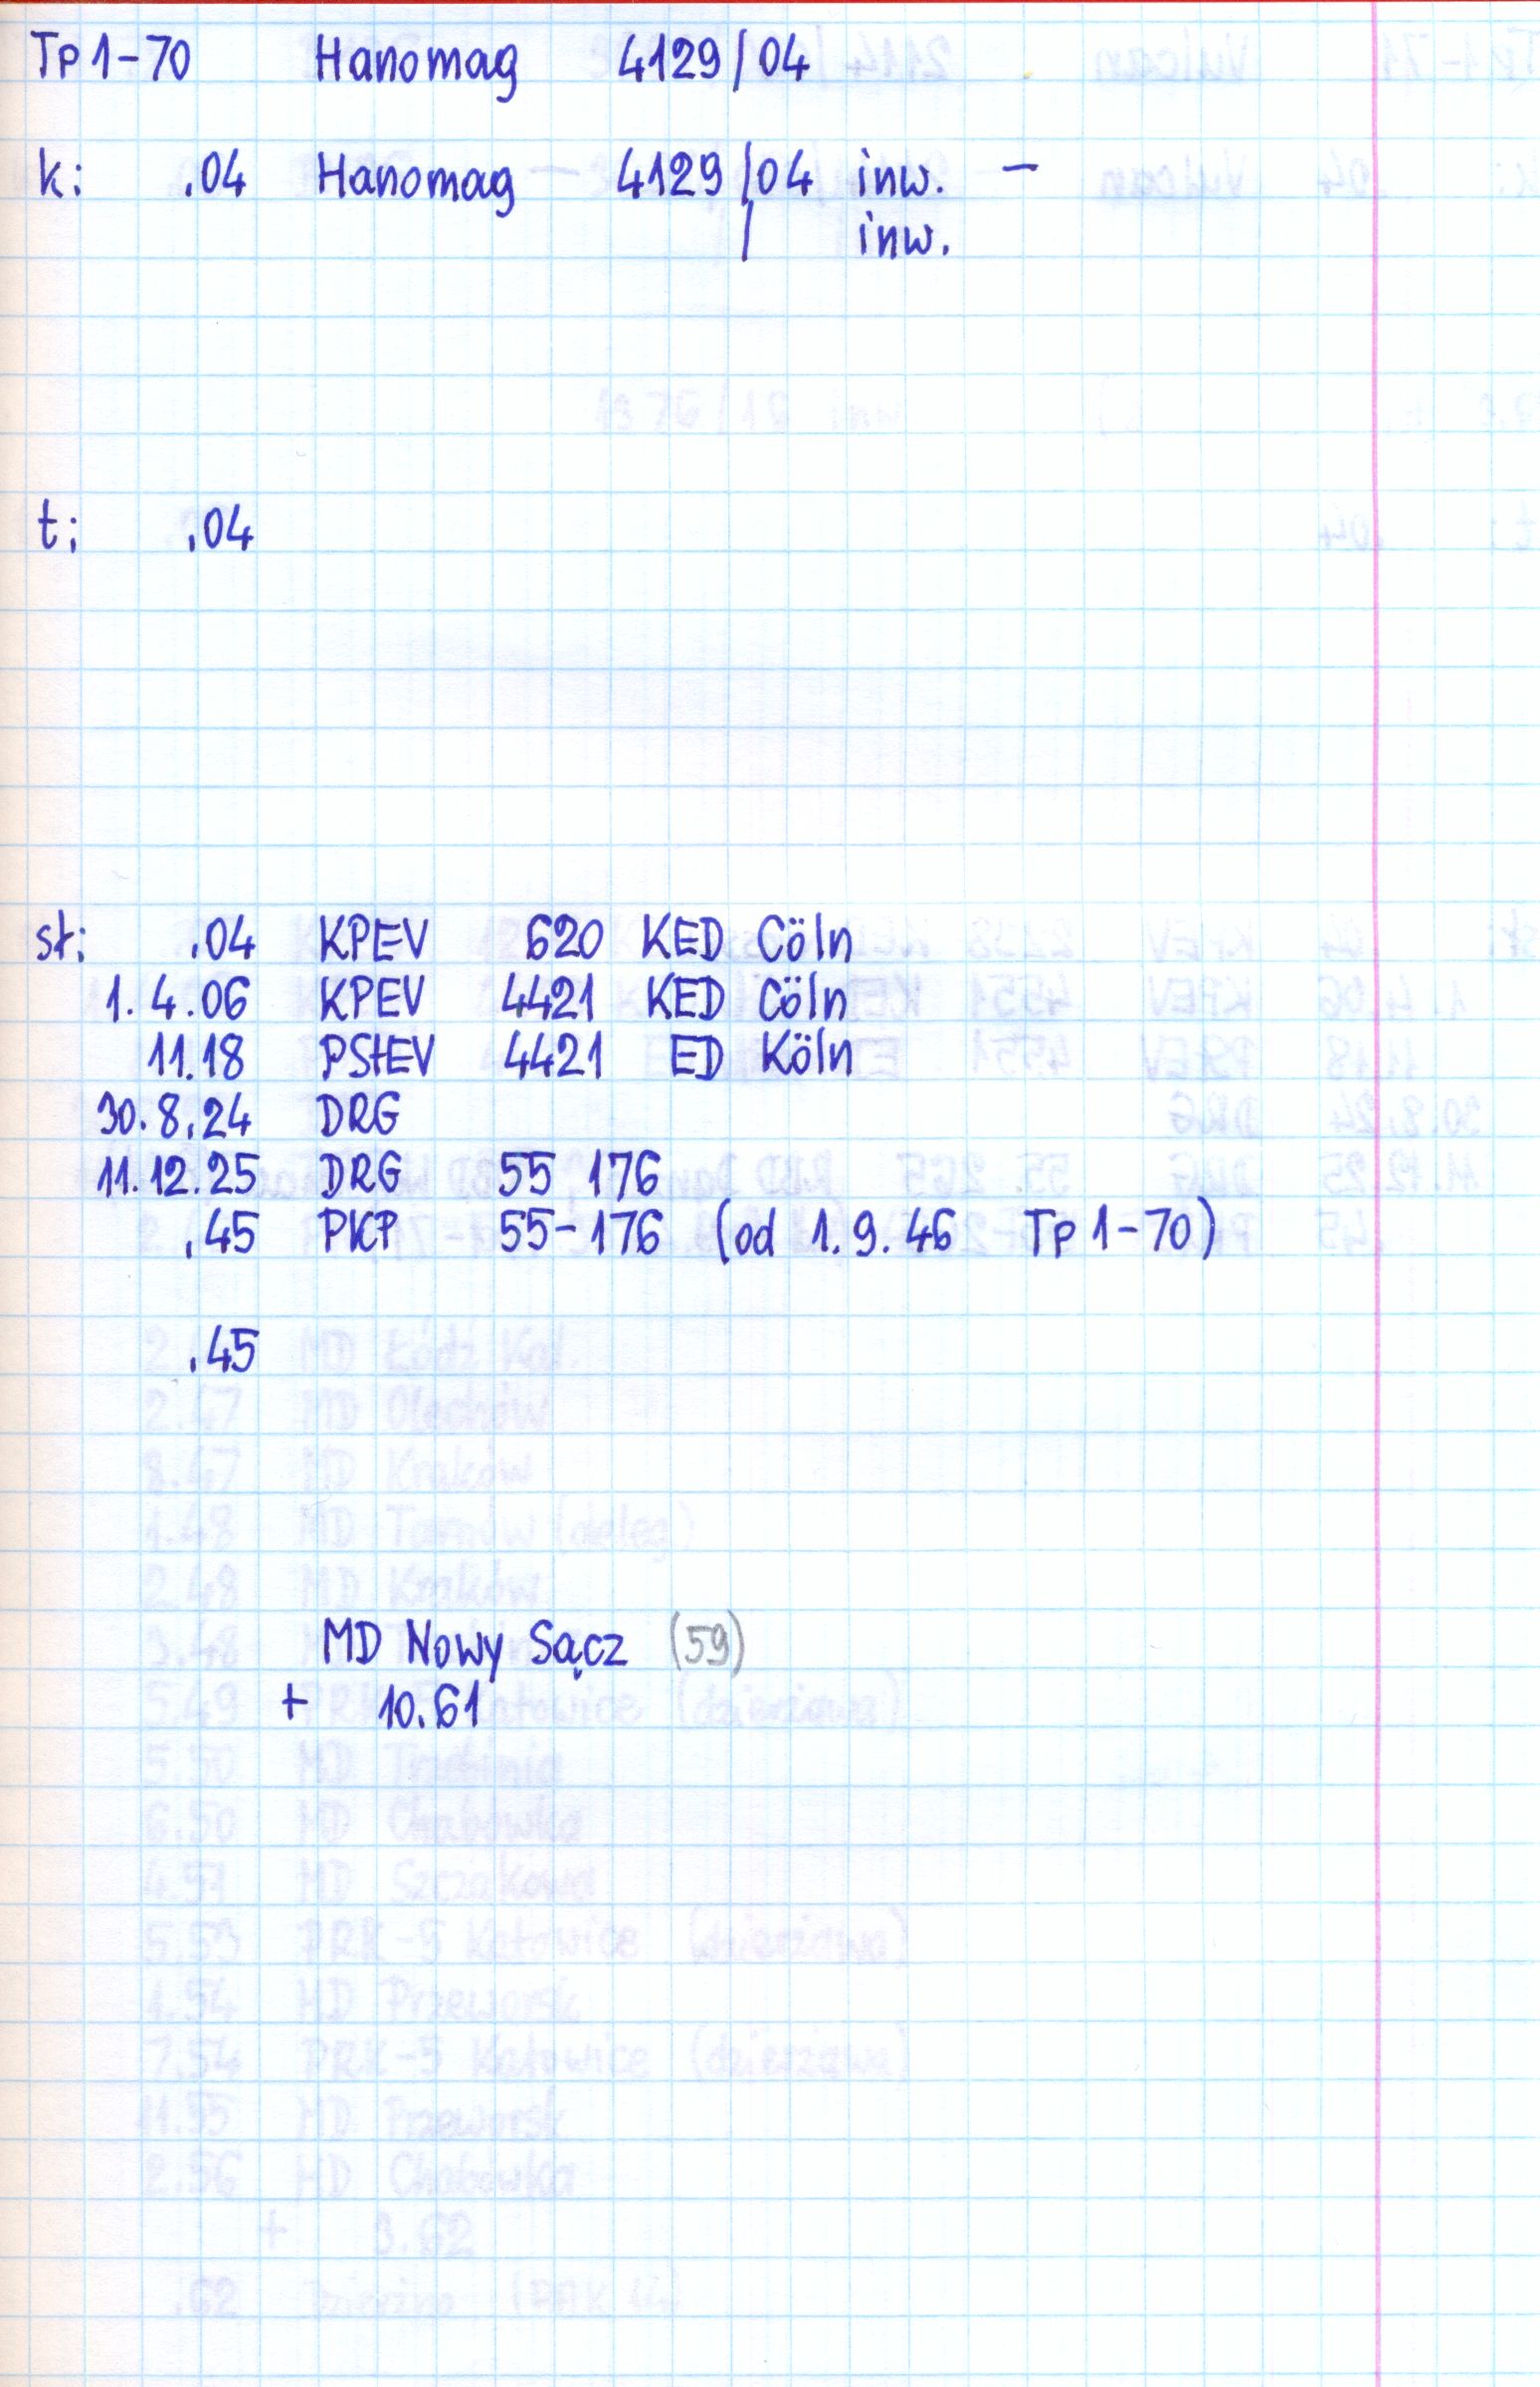 Tp 1-70 Hanomag 4129/04
k: .04 Hanomag 4129/04 inw. –
/ inw.
t: .04
sł: .04 KPEV 620 KED Cöln
1.4.06 KPEV 4421 KED Cöln
11.18 PStEV 4421 ED Köln
30.8.24 DRG
11.12.25 DRG 55 176
.45 PKP 55-176 (od 1.9.46 Tp 1-70)
.45
MD Nowy Sącz (59)
+ 10.61